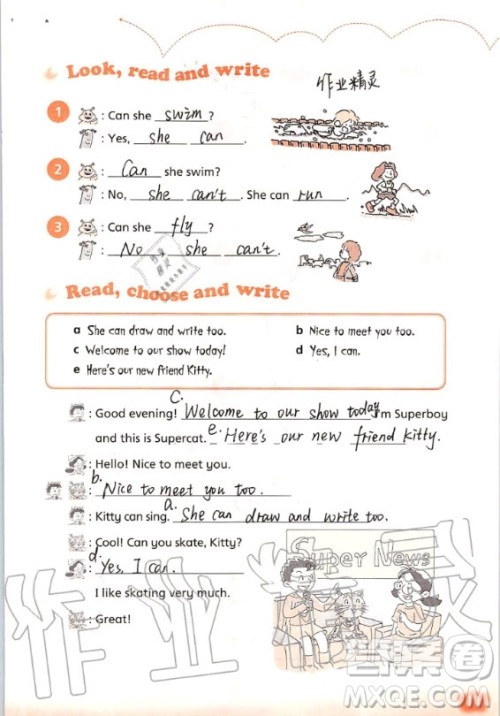 Look, read and write
作业精灵
1 : Can she swim ?
: Yes, she can .
2 : Can she swim?
: No, she can't . She can run .
3 : Can she fly ?
: No she can't .
Read, choose and write
a She can draw and write too. b Nice to meet you too.
c Welcome to our show today! d Yes, I can.
e Here's our new friend Kitty.
c.
: Good evening! Welcome to our show today I'm Superboy
and this is Supercat. e. Here's our new friend Kitty.
: Hello! Nice to meet you.
b.
: Nice to meet you too.
a.
: Kitty can sing. She can draw and write too.
: Cool! Can you skate, Kitty?
d.
: Yes, I can.
I like skating very much.
: Great!
Super News
作业
答案卷
MXQE.COM